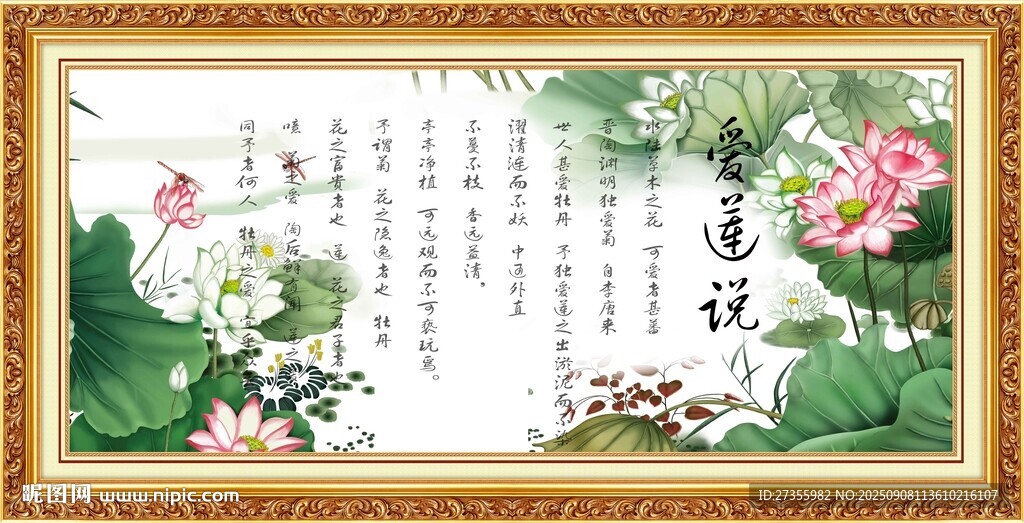 爱莲说
水陆草木之花 可爱者甚蕃
晋陶渊明独爱菊 自李唐来
世人甚爱牡丹 予独爱莲之出淤泥而不染
濯清涟而不妖 中通外直
不蔓不枝 香远益清。
亭亭净植 可远观而不可亵玩焉。
予谓菊 花之隐逸者也 牡丹
花之富贵者也 莲 花之君子者也
噫 菊之爱 陶后鲜有闻 莲之
同予者何人 牡丹之爱 宜乎
昵图网 www.nipic.com
ID:27355982 NO:20250908113610216107